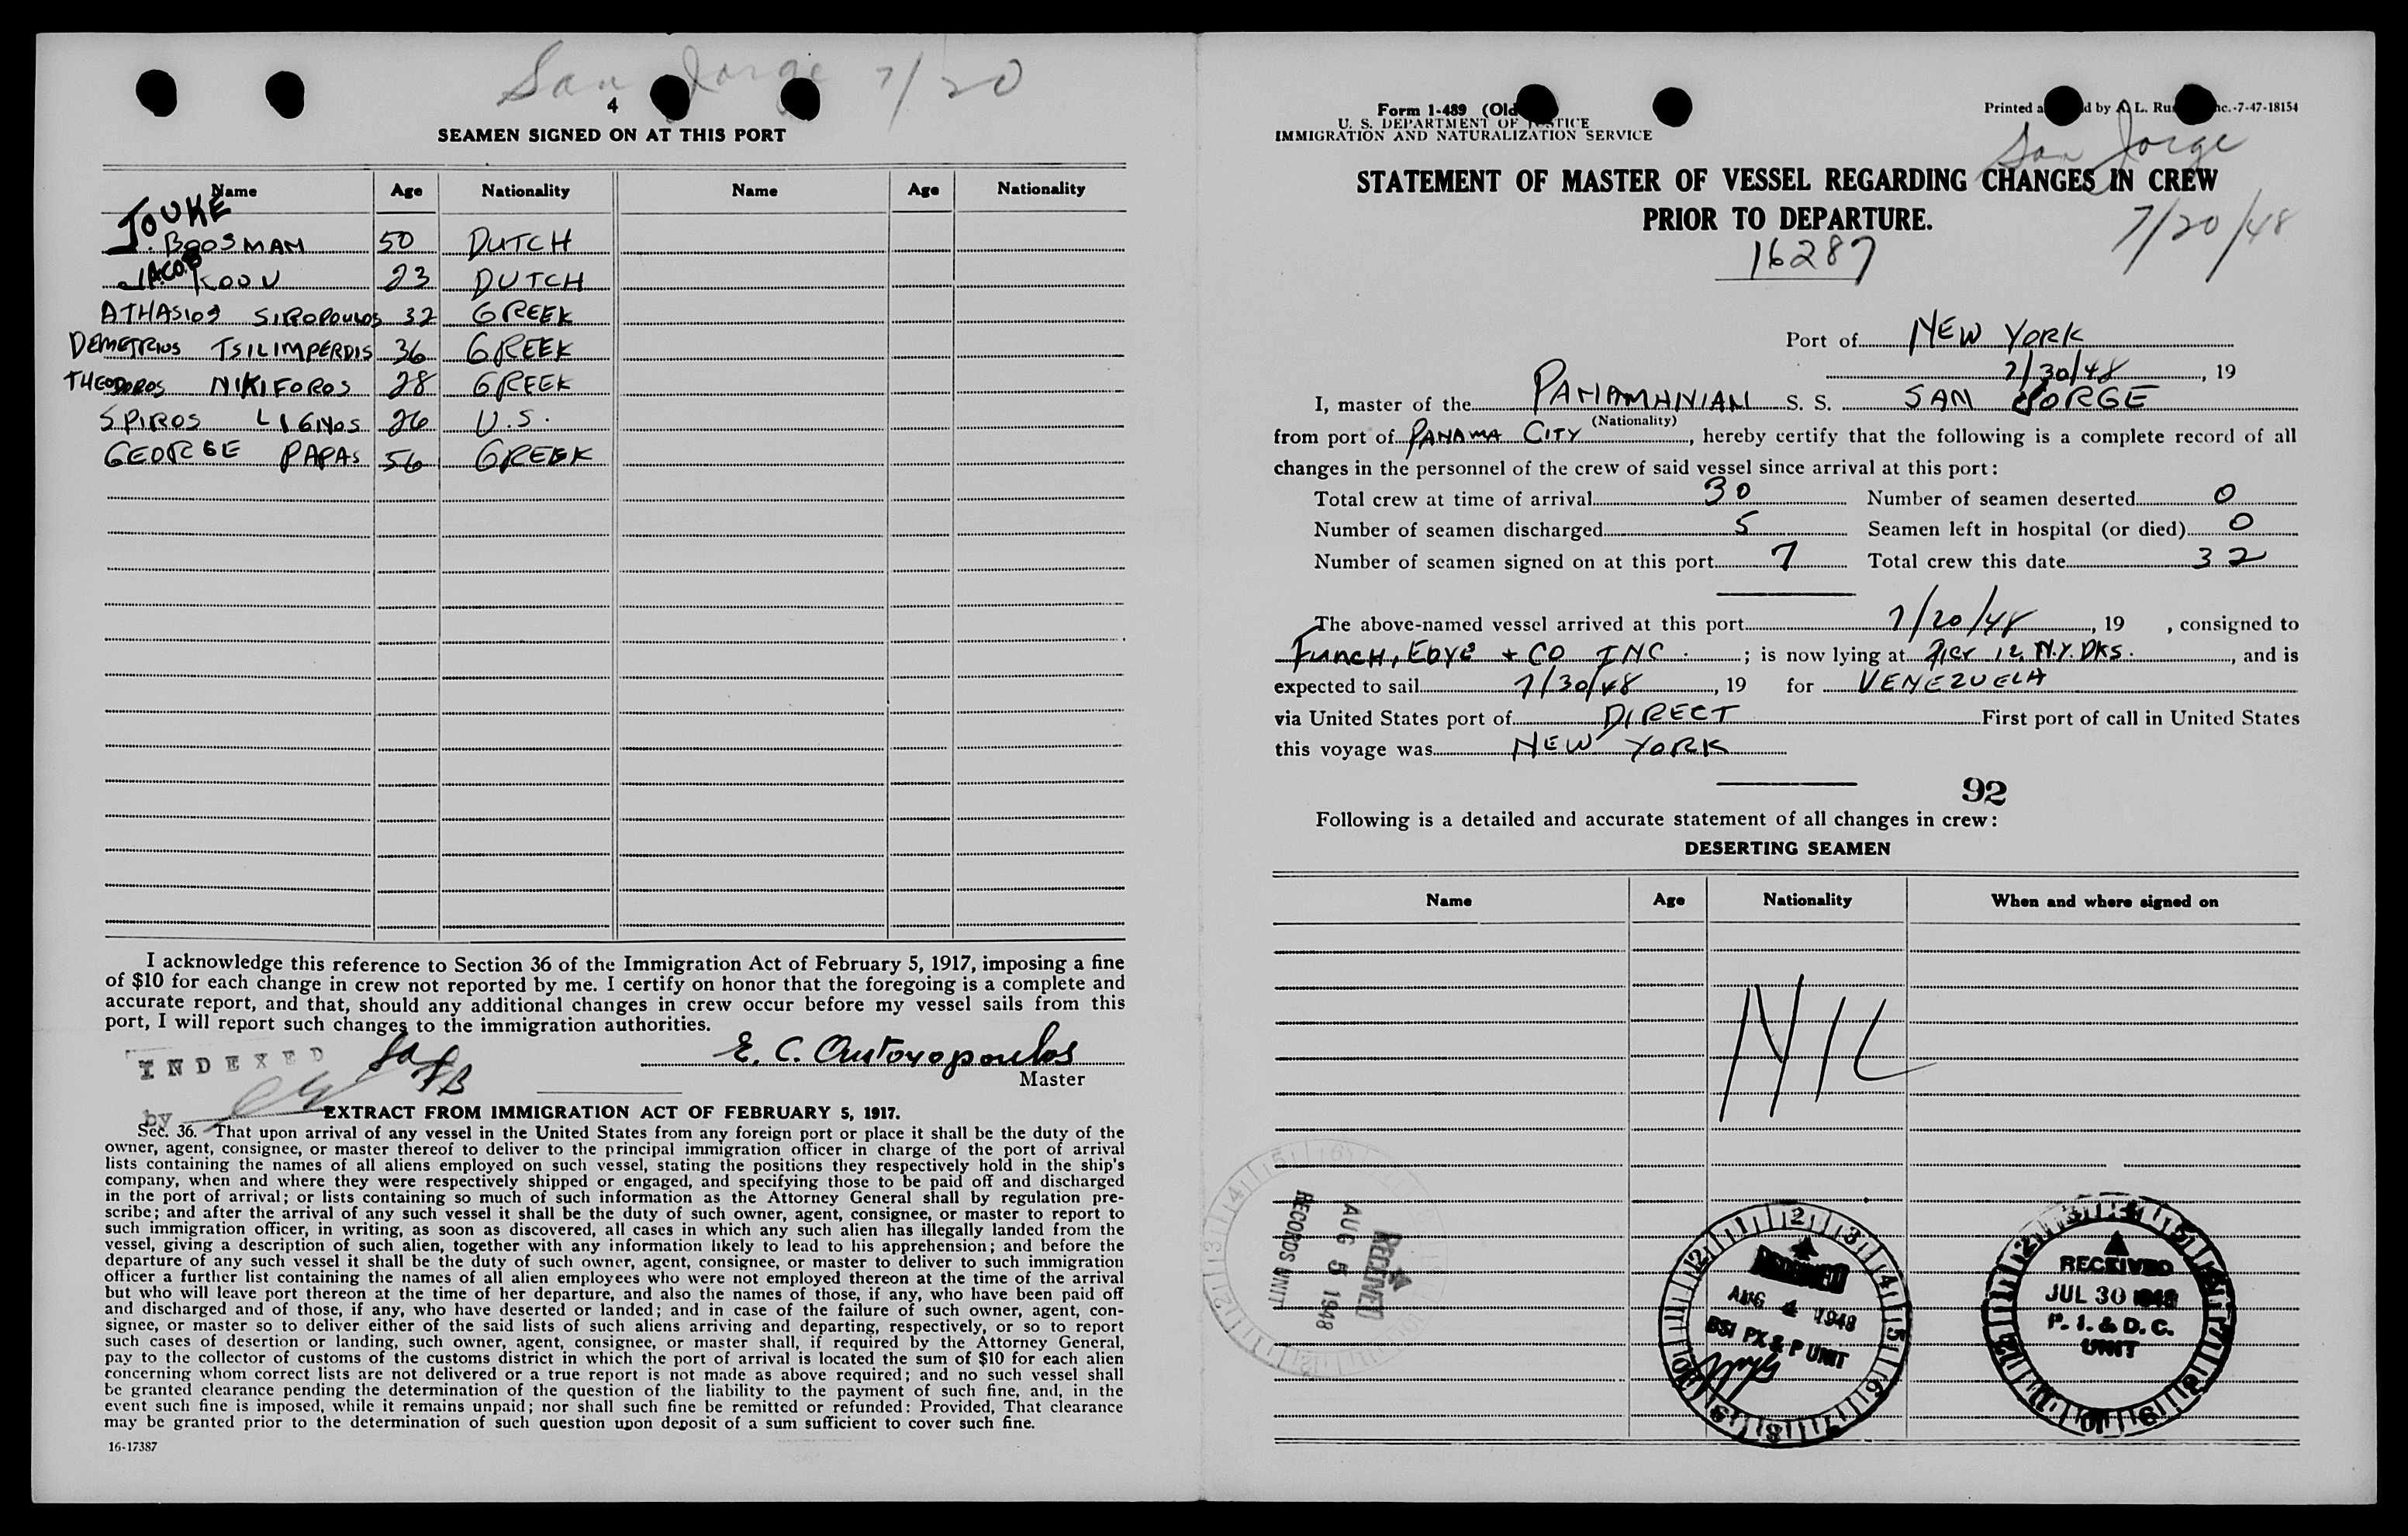 San Jorge 7/20
4
SEAMEN SIGNED ON AT THIS PORT
Name Age Nationality Name Age Nationality
JOUKE
J. BOOSMAN 50 DUTCH
JACOB KOOU 23 DUTCH
ATHASIOS SIROPOULOS 32 GREEK
DEMETRIUS TSILIMPERDIS 36 GREEK
THEODOROS NIKIFOROS 28 GREEK
SPIROS LIGNOS 26 U.S.
GEORGE PAPAS 56 GREEK
I acknowledge this reference to Section 36 of the Immigration Act of February 5, 1917, imposing a fine
of $10 for each change in crew not reported by me. I certify on honor that the foregoing is a complete and
accurate report, and that, should any additional changes in crew occur before my vessel sails from this
port, I will report such changes to the immigration authorities.
INDEXED
by
E. C.
Master
EXTRACT FROM IMMIGRATION ACT OF FEBRUARY 5, 1917.
Sec. 36. That upon arrival of any vessel in the United States from any foreign port or place it shall be the duty of the
owner, agent, consignee, or master thereof to deliver to the principal immigration officer in charge of the port of arrival
lists containing the names of all aliens employed on such vessel, stating the positions they respectively hold in the ship's
company, when and where they were respectively shipped or engaged, and specifying those to be paid off and discharged
in the port of arrival; or lists containing so much of such information as the Attorney General shall by regulation pre-
scribe; and after the arrival of any such vessel it shall be the duty of such owner, agent, consignee, or master to report to
such immigration officer, in writing, as soon as discovered, all cases in which any such alien has illegally landed from the
vessel, giving a description of such alien, together with any information likely to lead to his apprehension; and before the
departure of any such vessel it shall be the duty of such owner, agent, consignee, or master to deliver to such immigration
officer a further list containing the names of all alien employees who were not employed thereon at the time of the arrival
but who will leave port thereon at the time of her departure, and also the names of those, if any, who have been paid off
and discharged and of those, if any, who have deserted or landed; and in case of the failure of such owner, agent, con-
signee, or master so to deliver either of the said lists of such aliens arriving and departing, respectively, or so to report
such cases of desertion or landing, such owner, agent, consignee, or master shall, if required by the Attorney General,
pay to the collector of customs of the customs district in which the port of arrival is located the sum of $10 for each alien
concerning whom correct lists are not delivered or a true report is not made as above required; and no such vessel shall
be granted clearance pending the determination of the question of the liability to the payment of such fine, and, in the
event such fine is imposed, while it remains unpaid; nor shall such fine be remitted or refunded: Provided, That clearance
may be granted prior to the determination of such question upon deposit of a sum sufficient to cover such fine.
16-17387
Form I-489 (Old
U. S. DEPARTMENT OF JUSTICE
IMMIGRATION AND NATURALIZATION SERVICE
Printed a d by A. L. Ru nc.-7-47-18154
San Jorge
STATEMENT OF MASTER OF VESSEL REGARDING CHANGES IN CREW
PRIOR TO DEPARTURE.
7/20/48
16287
Port of NEW YORK
7/30/48, 19
I, master of the PANAMANIAN S. S. SAN JORGE
(Nationality)
from port of PANAMA CITY, hereby certify that the following is a complete record of all
changes in the personnel of the crew of said vessel since arrival at this port:
Total crew at time of arrival 30 Number of seamen deserted 0
Number of seamen discharged 5 Seamen left in hospital (or died) 0
Number of seamen signed on at this port 7 Total crew this date 32
The above-named vessel arrived at this port 7/20/48, 19 , consigned to
FUNCH, EDYE + CO INC.; is now lying at Pier 12, N.Y. DKS., and is
expected to sail 7/30/48, 19 for VENEZUELA
via United States port of DIRECT First port of call in United States
this voyage was NEW YORK
92
Following is a detailed and accurate statement of all changes in crew:
DESERTING SEAMEN
Name Age Nationality When and where signed on
NIL
RECEIVED
AUG 5 1948
RECORDS UNIT
RECEIVED
AUG 4 1948
BSI PX & P UNIT
RECEIVED
JUL 30 1948
P. I. & D. C.
UNIT